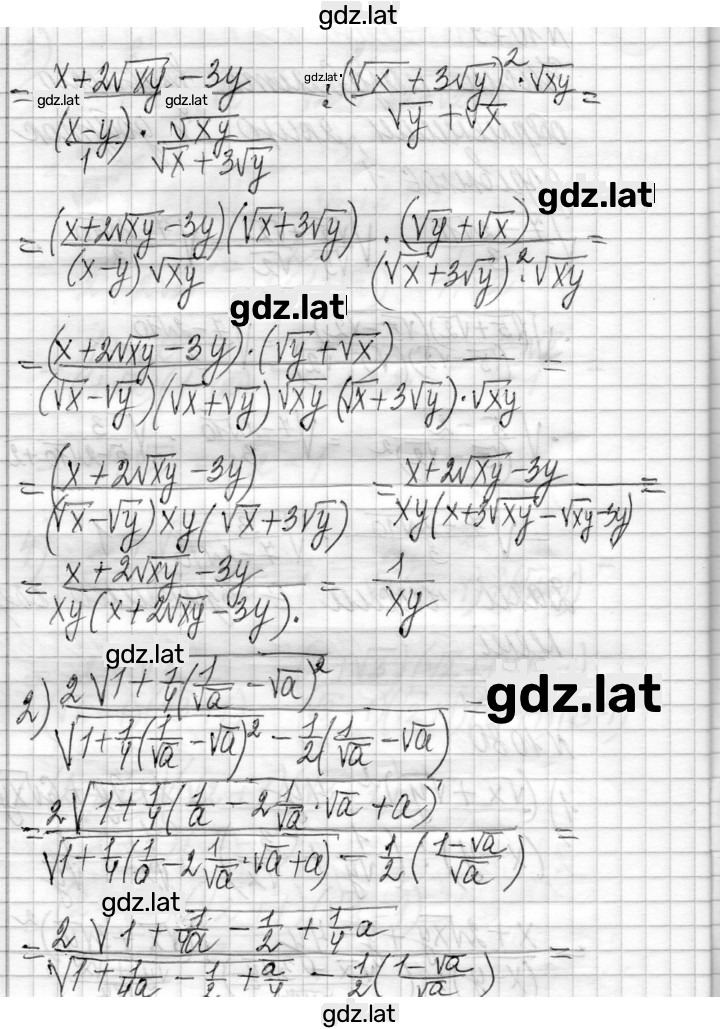 gdz.lat
= (x + 2√xy - 3y) / ((x-y)/1 · √xy/(√x + 3√y)) : ((√x + 3√y)² · √xy) / (√y + √x) =
gdz.lat gdz.lat gdz.lat
gdz.lat
= ((x+2√xy - 3y)(√x+3√y)) / ((x-y)√xy) · (√y + √x) / ((√x + 3√y)² · √xy) =
gdz.lat
= ((x + 2√xy - 3y)·(√y + √x)) / ((√x - √y)(√x + √y)√xy (√x + 3√y)·√xy) =
= (x + 2√xy - 3y) / ((√x - √y)xy(√x + 3√y)) = (x + 2√xy - 3y) / (xy(x + 3√xy - √xy - 3y)) =
= (x + 2√xy - 3y) / (xy(x + 2√xy - 3y)). = 1/xy
gdz.lat
2) 2√(1 + 1/4(1/√a - √a)²) / (√(1 + 1/4(1/√a - √a)²) - 1/2(1/√a - √a)) =
gdz.lat
= 2√(1 + 1/4(1/a - 2 1/√a · √a + a)) / (√(1 + 1/4(1/a - 2 1/√a · √a + a)) - 1/2((1-√a)/√a)) =
gdz.lat
= 2√(1 + 1/4a - 1/2 + 1/4 a) / (√(1 + 1/4a - 1/2 + a/4) - 1/2((1-√a)/√a)) =
gdz.lat